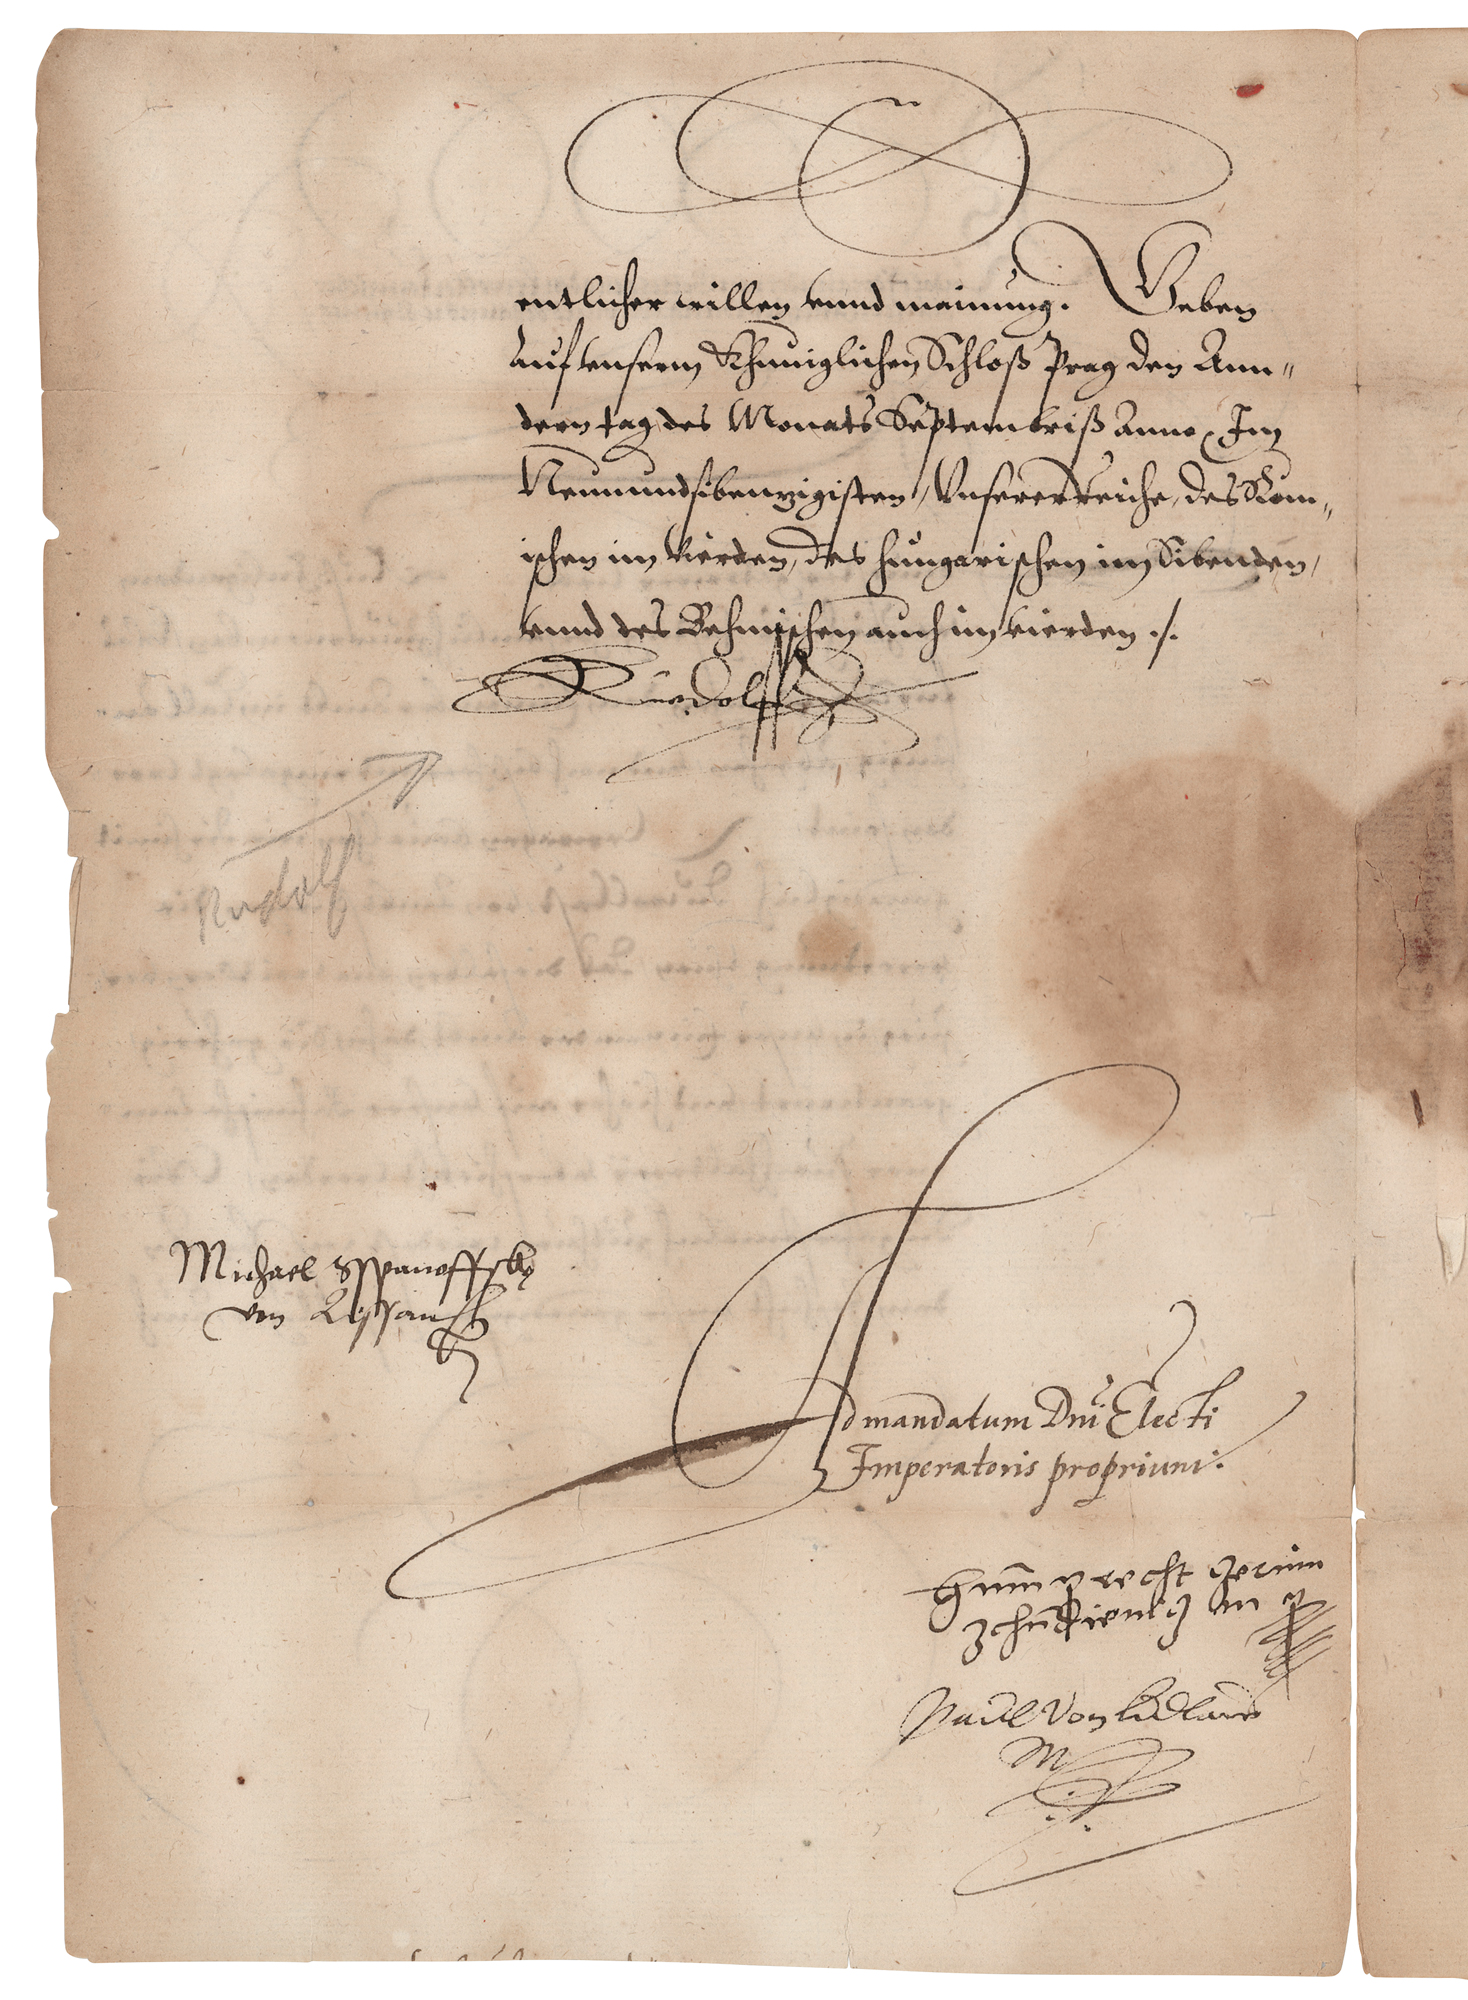 entlicher willen vnnd mainung. Geben
Auf vnserm Khuniglichen Schloß Prag den Ann=
dern tag des Monats Septembriß Anno Im
Neunundsibenzigisten / Vnserer Reiche, des Röm=
ischen im vierden, des Hungarischen im Sibenden,
vnnd des Behmischen auch im vierden ./.
Ruedolff
Rudolf
Michael Sspanoffsky
von
Ad mandatum Dni Electi
Imperatoris proprium:
Paul Von